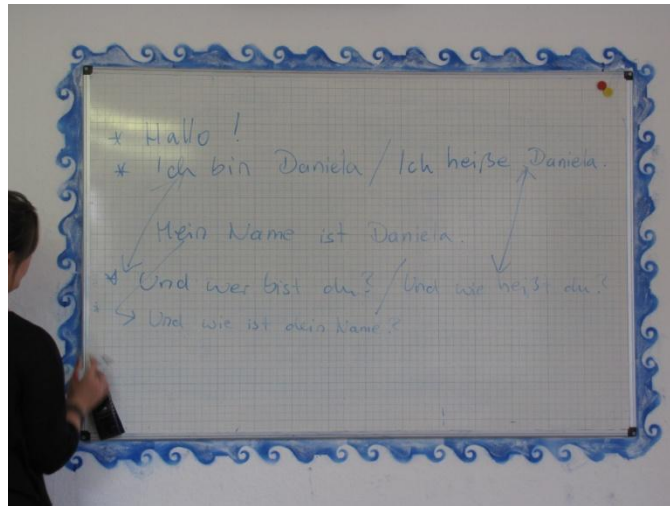 * Hallo !
* Ich bin Daniela / Ich heiße Daniela.
Mein Name ist Daniela.
* Und wer bist du? / Und wie heißt du?
Und wie ist dein Name?